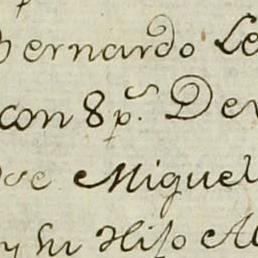 Bernardo Le
con 8 p.s De
ose Miguel
y su Hijo Al